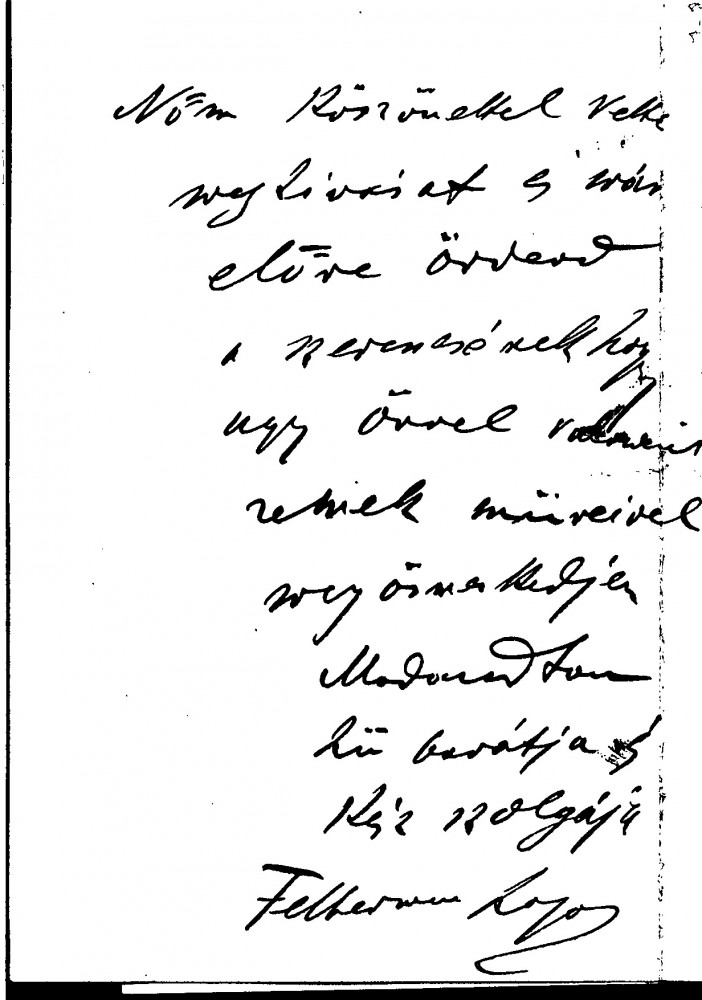 Nőm köszönettel vette
meghivását és már
előre örvend
a szerencsének hogy
ugy Önnel valamint
remek müveivel
megösmerkedjen
Maradandtam
hü barátja és
kész szolgája
Felbermann Lajos